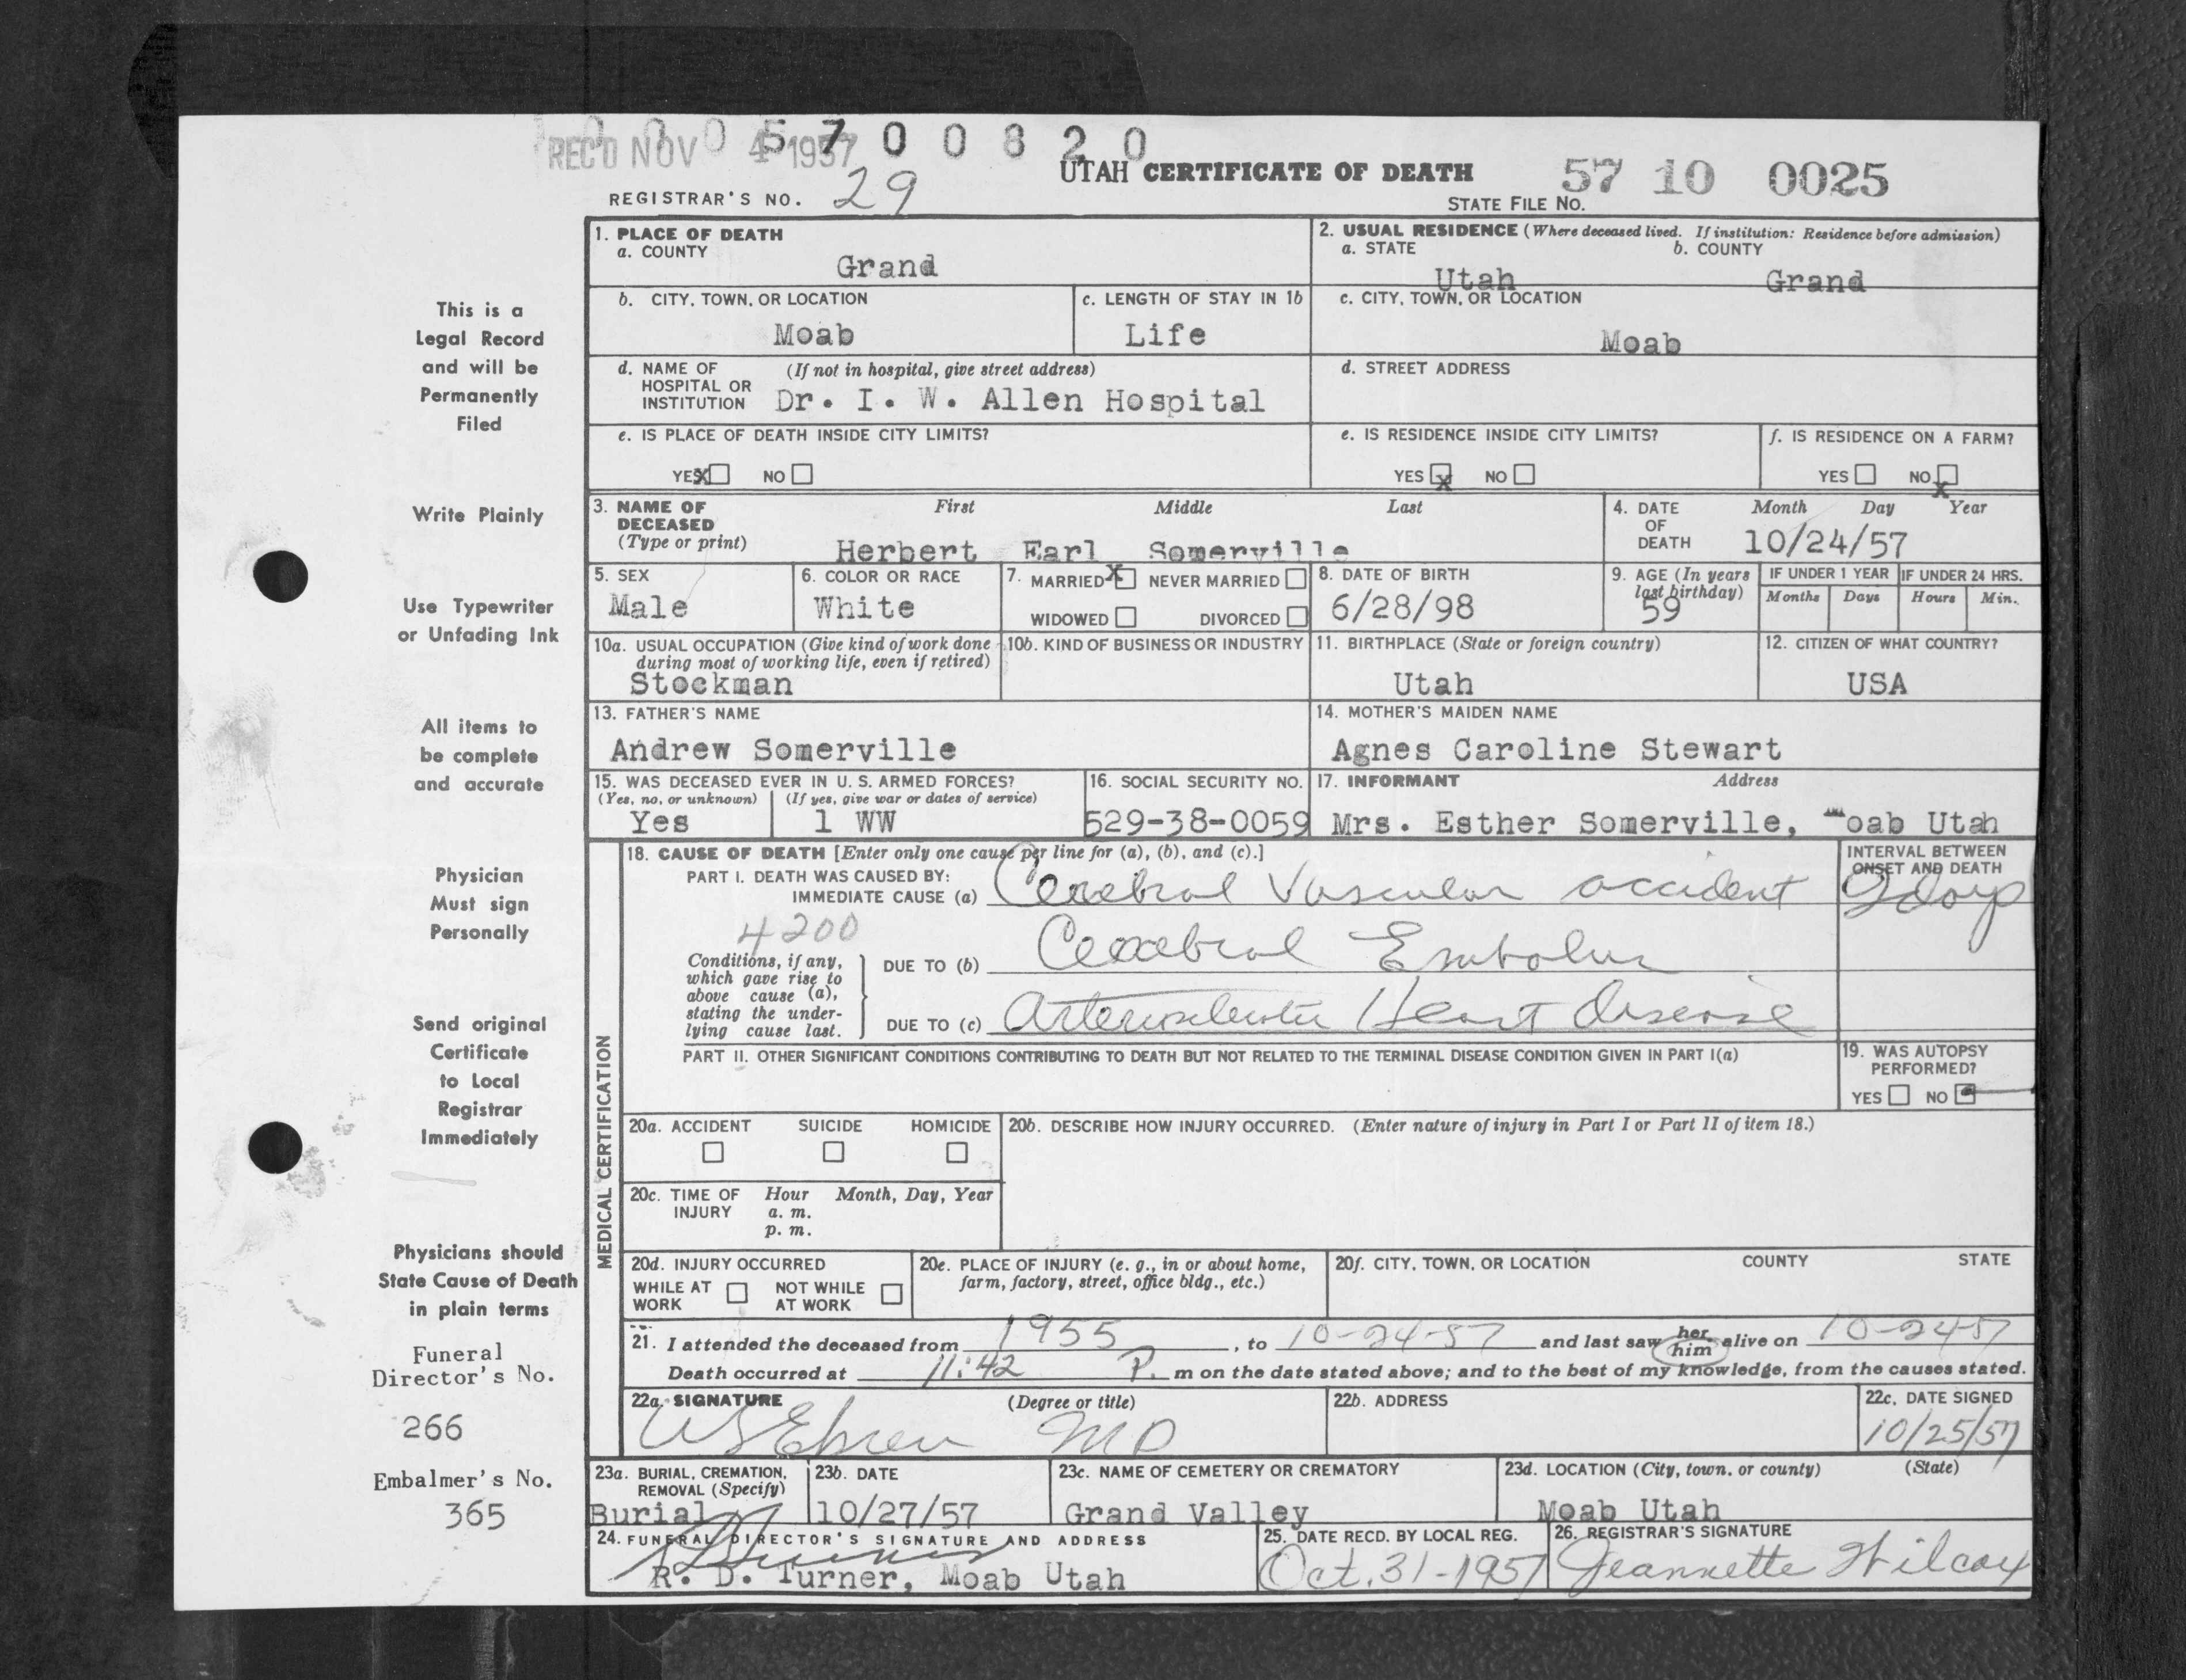 0 0 0 5 7 0 0 8 2 0
REC'D NOV 4 1957
UTAH CERTIFICATE OF DEATH
57 10 0025
REGISTRAR'S NO. 29
STATE FILE NO.
1. PLACE OF DEATH
a. COUNTY
Grand
2. USUAL RESIDENCE (Where deceased lived. If institution: Residence before admission)
a. STATE
b. COUNTY
Utah
Grand
b. CITY, TOWN, OR LOCATION
Moab
c. LENGTH OF STAY IN 1b
Life
c. CITY, TOWN, OR LOCATION
Moab
d. NAME OF HOSPITAL OR INSTITUTION
(If not in hospital, give street address)
Dr. I. W. Allen Hospital
d. STREET ADDRESS
e. IS PLACE OF DEATH INSIDE CITY LIMITS?
YES X NO
e. IS RESIDENCE INSIDE CITY LIMITS?
YES X NO
f. IS RESIDENCE ON A FARM?
YES NO X
3. NAME OF DECEASED (Type or print)
First Middle Last
Herbert Earl Somerville
4. DATE OF DEATH
Month Day Year
10/24/57
5. SEX
Male
6. COLOR OR RACE
White
7. MARRIED X NEVER MARRIED
WIDOWED DIVORCED
8. DATE OF BIRTH
6/28/98
9. AGE (In years last birthday)
59
IF UNDER 1 YEAR
Months Days
IF UNDER 24 HRS.
Hours Min.
10a. USUAL OCCUPATION (Give kind of work done during most of working life, even if retired)
Stockman
10b. KIND OF BUSINESS OR INDUSTRY
11. BIRTHPLACE (State or foreign country)
Utah
12. CITIZEN OF WHAT COUNTRY?
USA
13. FATHER'S NAME
Andrew Somerville
14. MOTHER'S MAIDEN NAME
Agnes Caroline Stewart
15. WAS DECEASED EVER IN U. S. ARMED FORCES?
(Yes, no, or unknown) (If yes, give war or dates of service)
Yes 1 WW
16. SOCIAL SECURITY NO.
529-38-0059
17. INFORMANT Address
Mrs. Esther Somerville, Moab Utah
MEDICAL CERTIFICATION
18. CAUSE OF DEATH [Enter only one cause per line for (a), (b), and (c).]
PART I. DEATH WAS CAUSED BY:
IMMEDIATE CAUSE (a) Cerebral Vascular accident
INTERVAL BETWEEN ONSET AND DEATH
2 days
4200
Conditions, if any, which gave rise to above cause (a), stating the underlying cause last.
DUE TO (b) Cerebral Embolus
DUE TO (c) Arteriosclerotic Heart Disease
PART II. OTHER SIGNIFICANT CONDITIONS CONTRIBUTING TO DEATH BUT NOT RELATED TO THE TERMINAL DISEASE CONDITION GIVEN IN PART I(a)
19. WAS AUTOPSY PERFORMED?
YES NO
20a. ACCIDENT SUICIDE HOMICIDE
20b. DESCRIBE HOW INJURY OCCURRED. (Enter nature of injury in Part I or Part II of item 18.)
20c. TIME OF INJURY
Hour Month, Day, Year
a. m.
p. m.
20d. INJURY OCCURRED
WHILE AT WORK
NOT WHILE AT WORK
20e. PLACE OF INJURY (e. g., in or about home, farm, factory, street, office bldg., etc.)
20f. CITY, TOWN, OR LOCATION COUNTY STATE
21. I attended the deceased from 1955, to 10-24-57 and last saw her him alive on 10-24-57
Death occurred at 11:42 P. m on the date stated above; and to the best of my knowledge, from the causes stated.
22a. SIGNATURE (Degree or title)
MD
22b. ADDRESS
22c. DATE SIGNED
10/25/57
23a. BURIAL, CREMATION, REMOVAL (Specify)
Burial
23b. DATE
10/27/57
23c. NAME OF CEMETERY OR CREMATORY
Grand Valley
23d. LOCATION (City, town, or county) (State)
Moab Utah
24. FUNERAL DIRECTOR'S SIGNATURE AND ADDRESS
R. D. Turner, Moab Utah
25. DATE RECD. BY LOCAL REG.
Oct. 31-1957
26. REGISTRAR'S SIGNATURE
Jeannette Wilcox
This is a
Legal Record
and will be
Permanently
Filed
Write Plainly
Use Typewriter
or Unfading Ink
All items to
be complete
and accurate
Physician
Must sign
Personally
Send original
Certificate
to Local
Registrar
Immediately
Physicians should
State Cause of Death
in plain terms
Funeral
Director's No.
266
Embalmer's No.
365